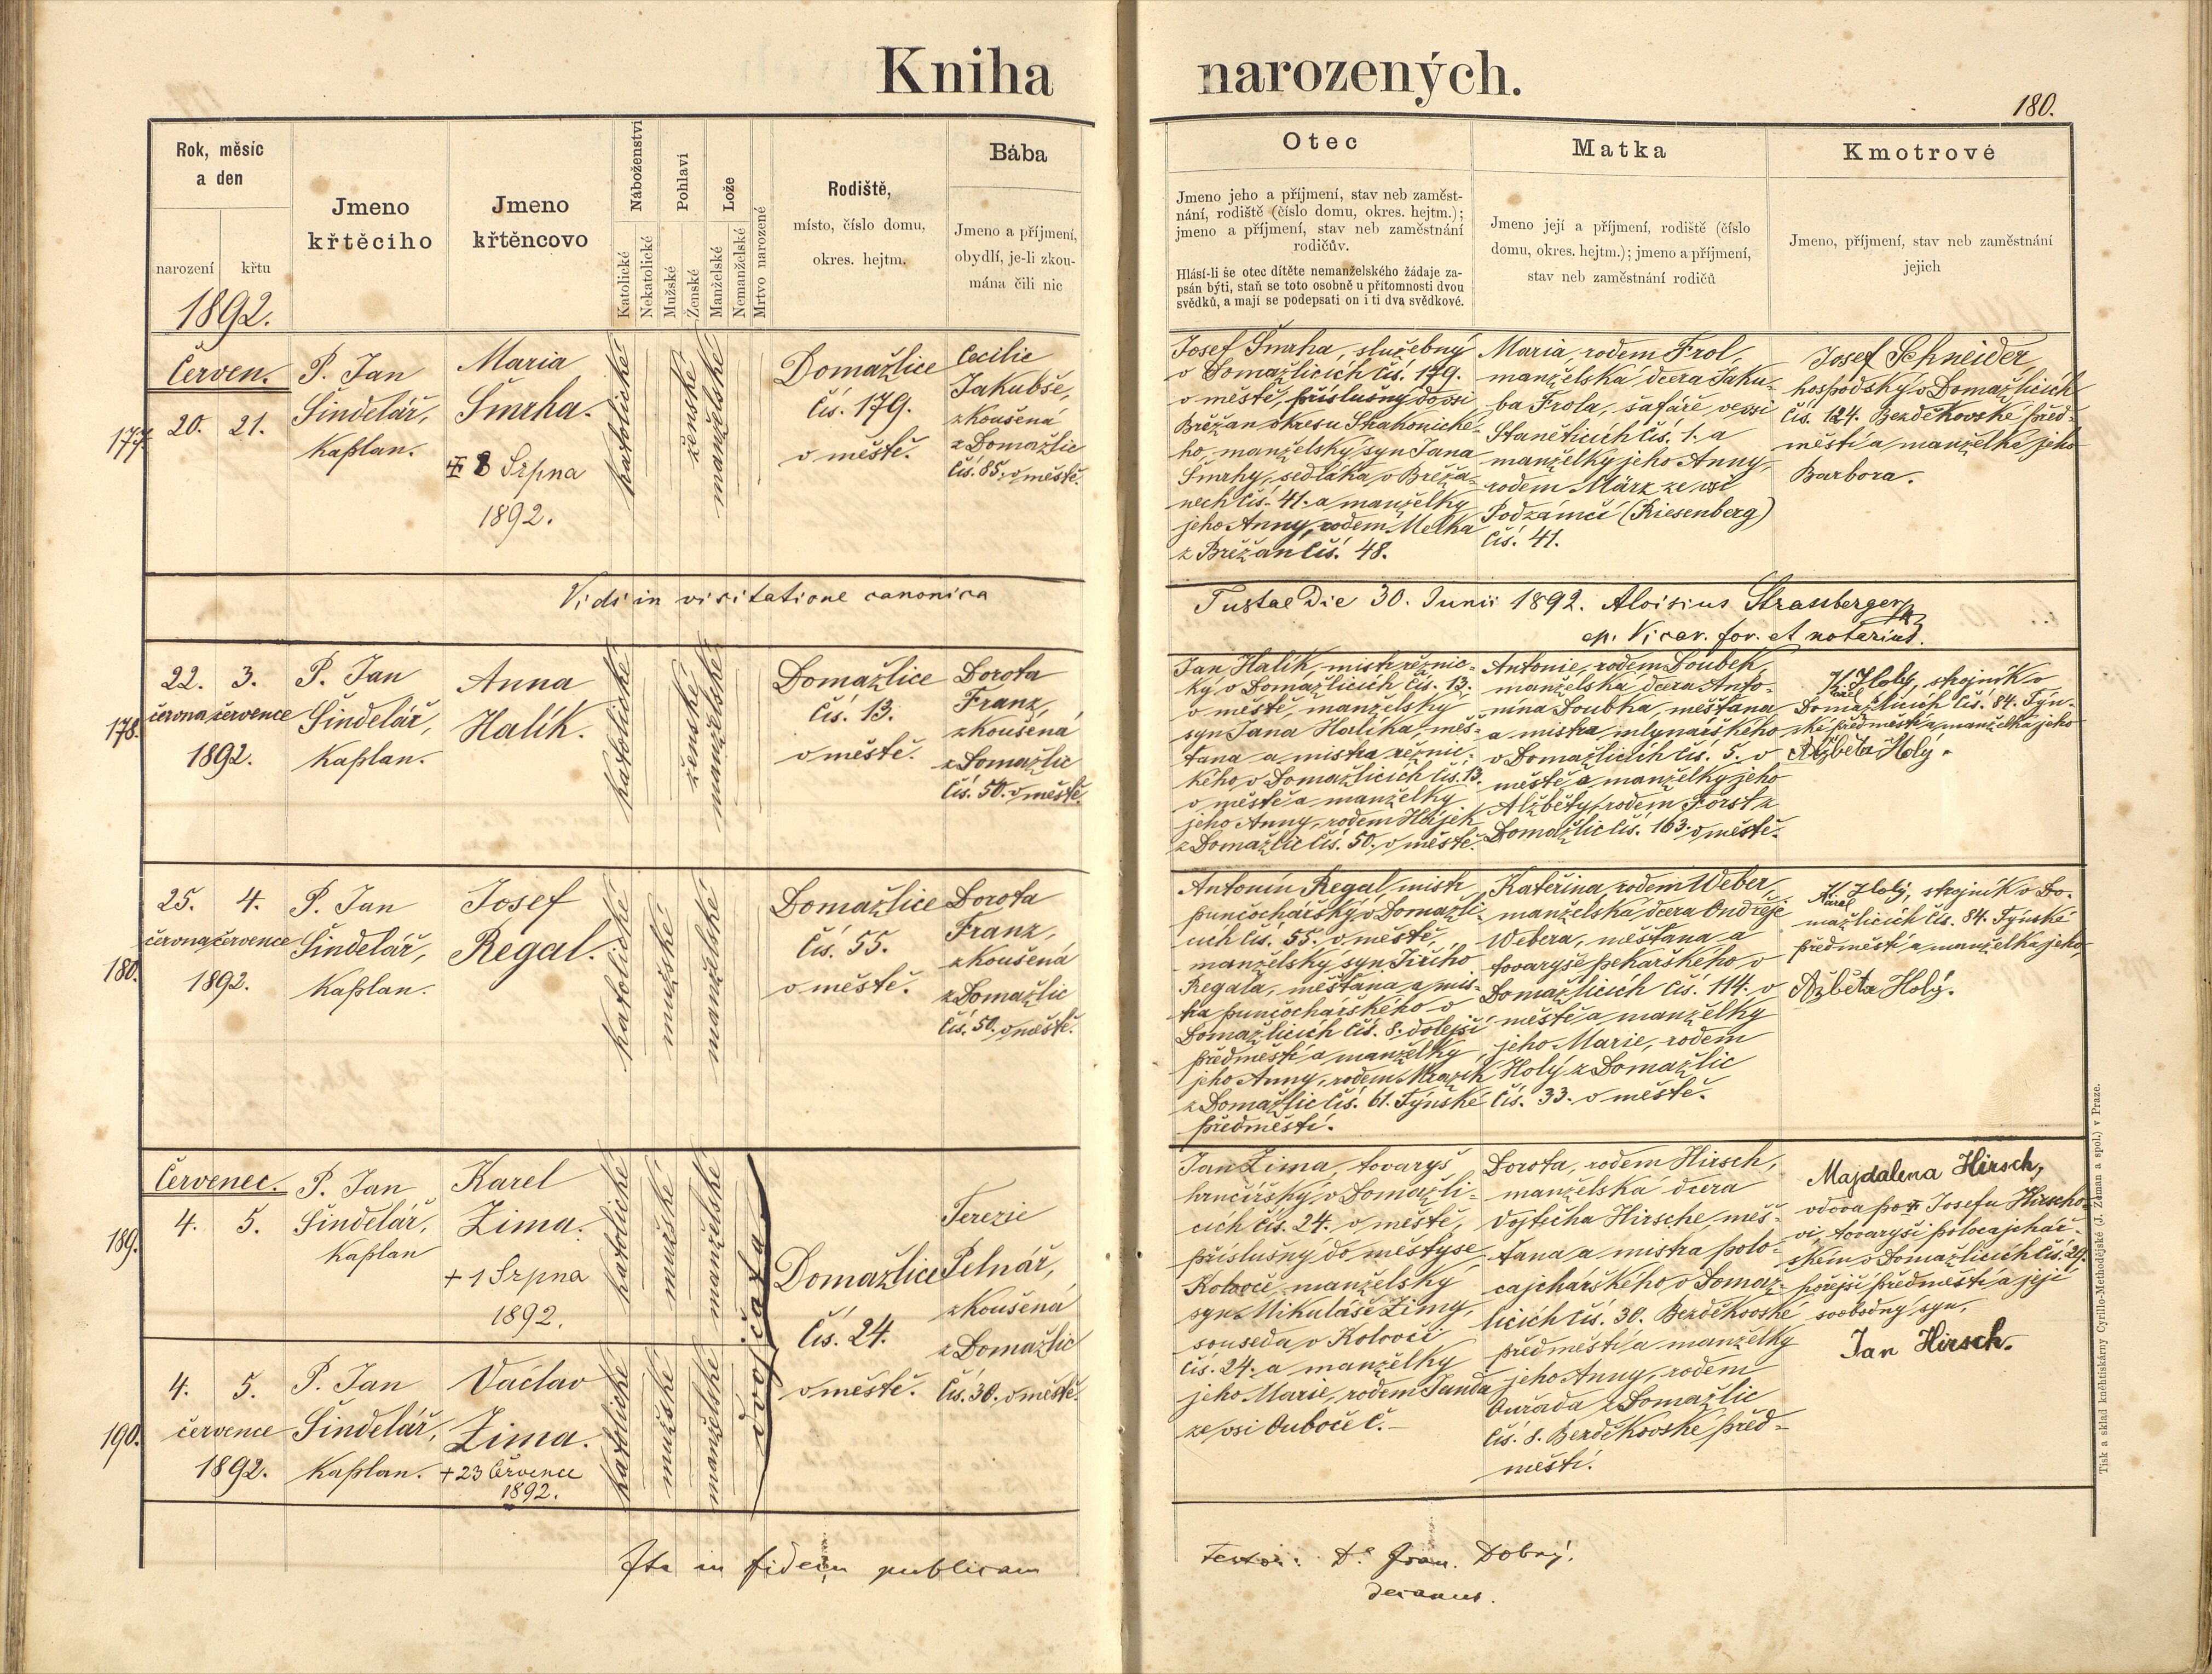 Kniha narozených.
180.
Rok, měsíc
a den
narození křtu
1892.
Jmeno
křtěciho
Jmeno
křtěncovo
Náboženství
Katolické
Nekatolické
Pohlaví
Mužské
Ženské
Lože
Manželské
Nemanželské
Mrtvo narozené
Rodiště,
místo, číslo domu,
okres. hejtm.
Bába
Jmeno a příjmení,
obydlí, je-li zkou-
mána čili nic
Otec
Jmeno jeho a příjmení, stav neb zaměst-
nání, rodiště (číslo domu, okres. hejtm.);
jmeno a příjmení, stav neb zaměstnání
rodičův.
Hlásí-li se otec dítěte nemanželského žádaje za-
psán býti, staň se toto osobně u přítomnosti dvou
svědků, a mají se podepsati on i ti dva svědkové.
Matka
Jmeno její a příjmení, rodiště (číslo
domu, okres. hejtm.); jmeno a příjmení,
stav neb zaměstnání rodičů
Kmotrové
Jmeno, příjmení, stav neb zaměstnání
jejich
177.
Červen.
20. 21.
P. Jan
Šindelář,
kaplan.
Maria
Šmrha.
8 Srpna
1892.
katolické
ženské
manželské
Domažlice
čís. 179.
v městě.
Cecilie
Jakubše,
zkoušená
z Domažlic
čís. 85. v městě.
Josef Šmrha, služebný
v Domažlicích čís. 179.
v městě, příslušný do vsi
Břěžan okresu Strakonické-
ho, manželský syn Jana
Šmrhy, sedláka v Břěža-
nech čís. 41. a manželky
jeho Anny, rodem Melka
z Břěžan čís. 48.
Maria, rodem Frol,
manželská dcera Jaku-
ba Frola, šafáře ve vsi
Staněticích čís. 1. a
manželky jeho Anny,
rodem März ze vsi
Podzámčí (Riesenberg)
čís. 41.
Josef Schneider,
hospodský v Domažlicích
čís. 124. Bezděkovské před-
městí a manželka jeho
Barbora.
Vidi in visitatione canonica
Tustae Die 30. Junii 1892. Aloisius Strassberger
ep. Vicar. for. et notarius.
178.
22. 3.
června července
1892.
P. Jan
Šindelář,
kaplan.
Anna
Halík.
katolické
ženské
manželské
Domažlice
čís. 13.
v městě.
Dorota
Franz,
zkoušená
z Domažlic
čís. 50. v městě.
Jan Halík, mistr řeznic-
ký v Domažlicích čís. 13.
v městě, manželský
syn Jana Halíka, měš-
ťana a mistra řeznic-
kého v Domažlicích čís. 13.
v městě a manželky
jeho Anny, rodem Hájek
z Domažlic čís. 50. v městě.
Antonie, rodem Doubek,
manželská dcera Anto-
nína Doubka, měšťana
a mistra mlynářského
v Domažlicích čís. 5. v
městě a manželky jeho
Alžběty, rodem Forst z
Domažlic čís. 163. v městě.
K. Holý, strojník v
Karel
Domažlicích čís. 84. Týn-
ské předměstí a manželka jeho
Alžběta Holý.
180.
25. 4.
června července
1892.
P. Jan
Šindelář,
kaplan.
Josef
Regal.
katolické
mužské
manželské
Domažlice
čís. 55.
v městě.
Dorota
Franz,
zkoušená
z Domažlic
čís. 50. v městě.
Antonín Regal, mistr
punčochářský v Domažli-
cích čís. 55. v městě,
manželský syn Jiřího
Regala, měšťana a mis-
tra punčochářského v
Domažlicích čís. 8. dolejší
předměstí a manželky
jeho Anny, rodem Mrazek
z Domažlic čís. 61. Týnské
předměstí.
Kateřina, rodem Weber,
manželská dcera Ondřeje
Webera, měšťana a
tovaryše pekařského v
Domažlicích čís. 114. v
městě a manželky
jeho Marie, rodem
Holý z Domažlic
čís. 33. v městě.
K. Holý, strojník v Do-
Karel
mažlicích čís. 84. Týnské
předměstí a manželka jeho,
Alžběta Holý.
189.
Červenec.
4. 5.
P. Jan
Šindelář,
kaplan
Karel
Zima.
+ 1 Srpna
1892.
katolické
mužské
manželské
dvojčata
Domažlice
čís. 24.
v městě.
Terezie
Pelnář,
zkoušená
z Domažlic
čís. 30. v městě.
Jan Zima, tovaryš
hrnčířský v Domažli-
cích čís. 24. v městě,
příslušný do městyse
Koloveč, manželský
syn Mikuláše Zimy,
souseda v Kolovči
čís. 24. a manželky
jeho Marie, rodem Janda
ze vsi Ouboče č. –
Dorota, rodem Hirsch,
manželská dcera
Vojtěcha Hirsche, měš-
ťana a mistra polo-
cajchářského, v Domaž-
licích čís. 30. Bezděkovské
předměstí a manželky
jeho Anny, rodem
Ouřada z Domažlic
čís. 8. Bezděkovské před-
městí.
Majdalena Hirsch,
vdova po Josefu Hirscho-
vi, tovaryši polocajchář-
ském v Domažlicích čís. 29.
hořejší předměstí a její
svobodný syn,
Jan Hirsch.
190.
4. 5.
července
1892.
P. Jan
Šindelář,
kaplan.
Václav
Zima.
+ 23 Července
1892.
katolické
mužské
manželské
Ita in fidem publicam
testor: Dr Joan. Dobrý,
decanus.
Tisk a sklad kněhtiskárny Cyrillo-Methodějské (J. Zeman a spol.) v Praze.